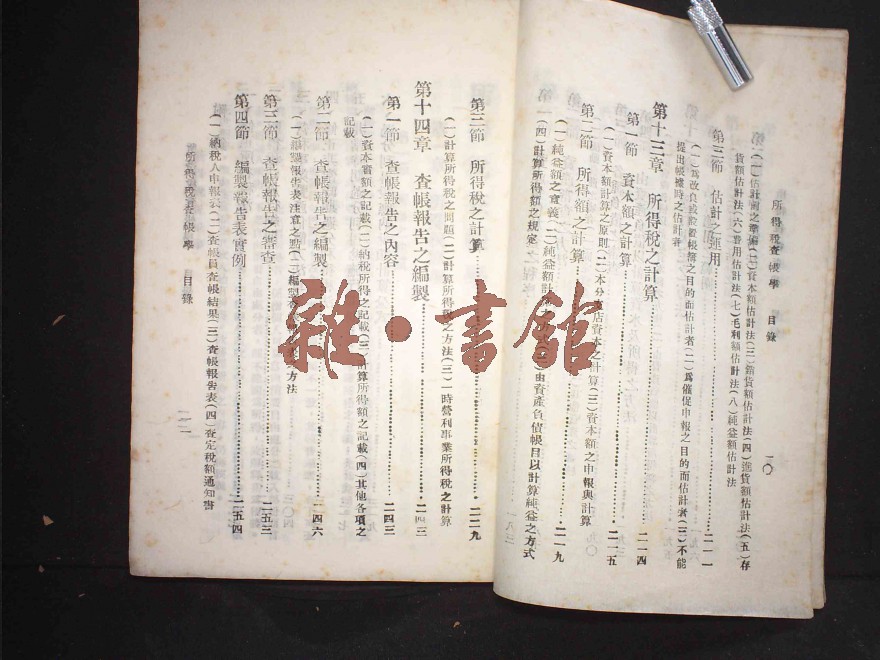 所得稅查帳學 目錄 二〇
(一)估計前之準備(二)資本額估計法(三)銷貨額估計法(四)進貨額估計法(五)存
貨額估計法(六)費用估計法(七)毛利額估計法(八)純益額估計法
第三節 估計之運用 二一一
(一)爲改良或設置帳簿之目的而估計者(二)爲催促申報之目的而估計者(三)不能
提出帳據時之估計者
第十三章 所得稅之計算 二一四
第一節 資本額之計算 二一五
(一)資本額計算之原則(二)本分支店資本之計算(三)資本額之申報與計算
第二節 所得額之計算 二一九
(一)純益額之意義(二)純益額計 由資產負債帳目以計算純益之方式
(四)計算所得額之規定
第三節 所得稅之計算 二二九
(一)計算所得稅之問題(二)計算所得稅之方法(三)一時營利事業所得稅之計算
第十四章 查帳報告之編製 二四三
第一節 查帳報告之內容 二四三
(一)資本實額之記載(二)納稅所得之記載(三)計算所得額之記載(四)其他各項之
記載
第二節 查帳報告之編製 二四六
(一)編製報告表注意之點(二)編製 方法
第三節 查帳報告之審查 二五三
第四節 編製報告表實例 二五四
(一)納稅人申報表(二)查帳員查帳結果(三)查帳報告表(四)查定稅額通知書
所得稅查帳學 目錄
雜·書館